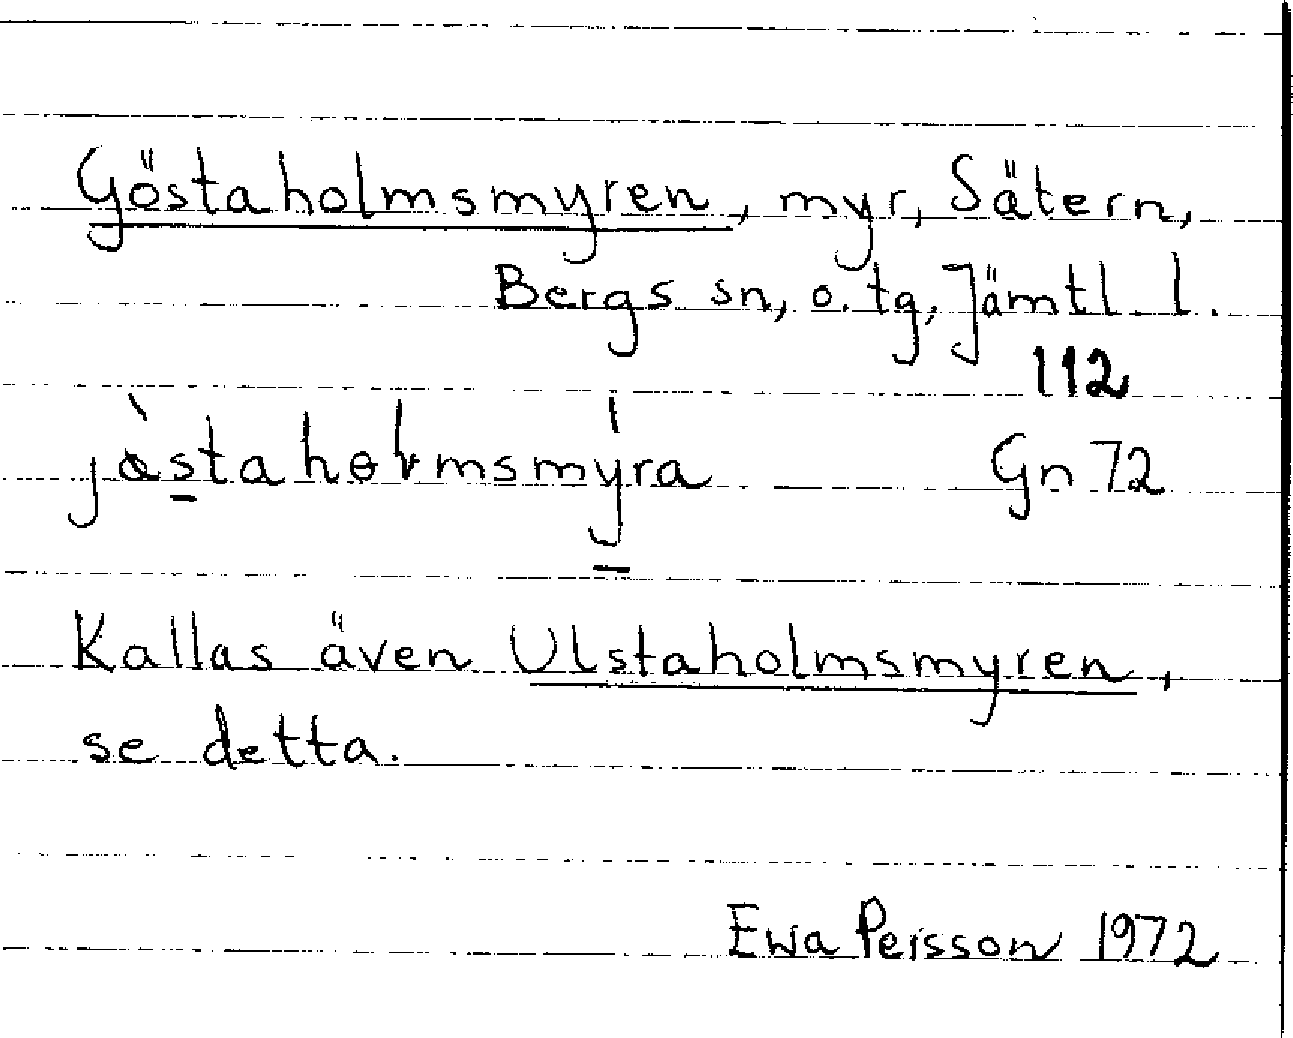 Göstaholmsmyren, myr, Sätern,
Bergs sn, o. tg, Jämtl. l.
112
jòstahoɫmsmýra Gn 72
Kallas även Ulstaholmsmyren,
se detta.
Ewa Persson 1972